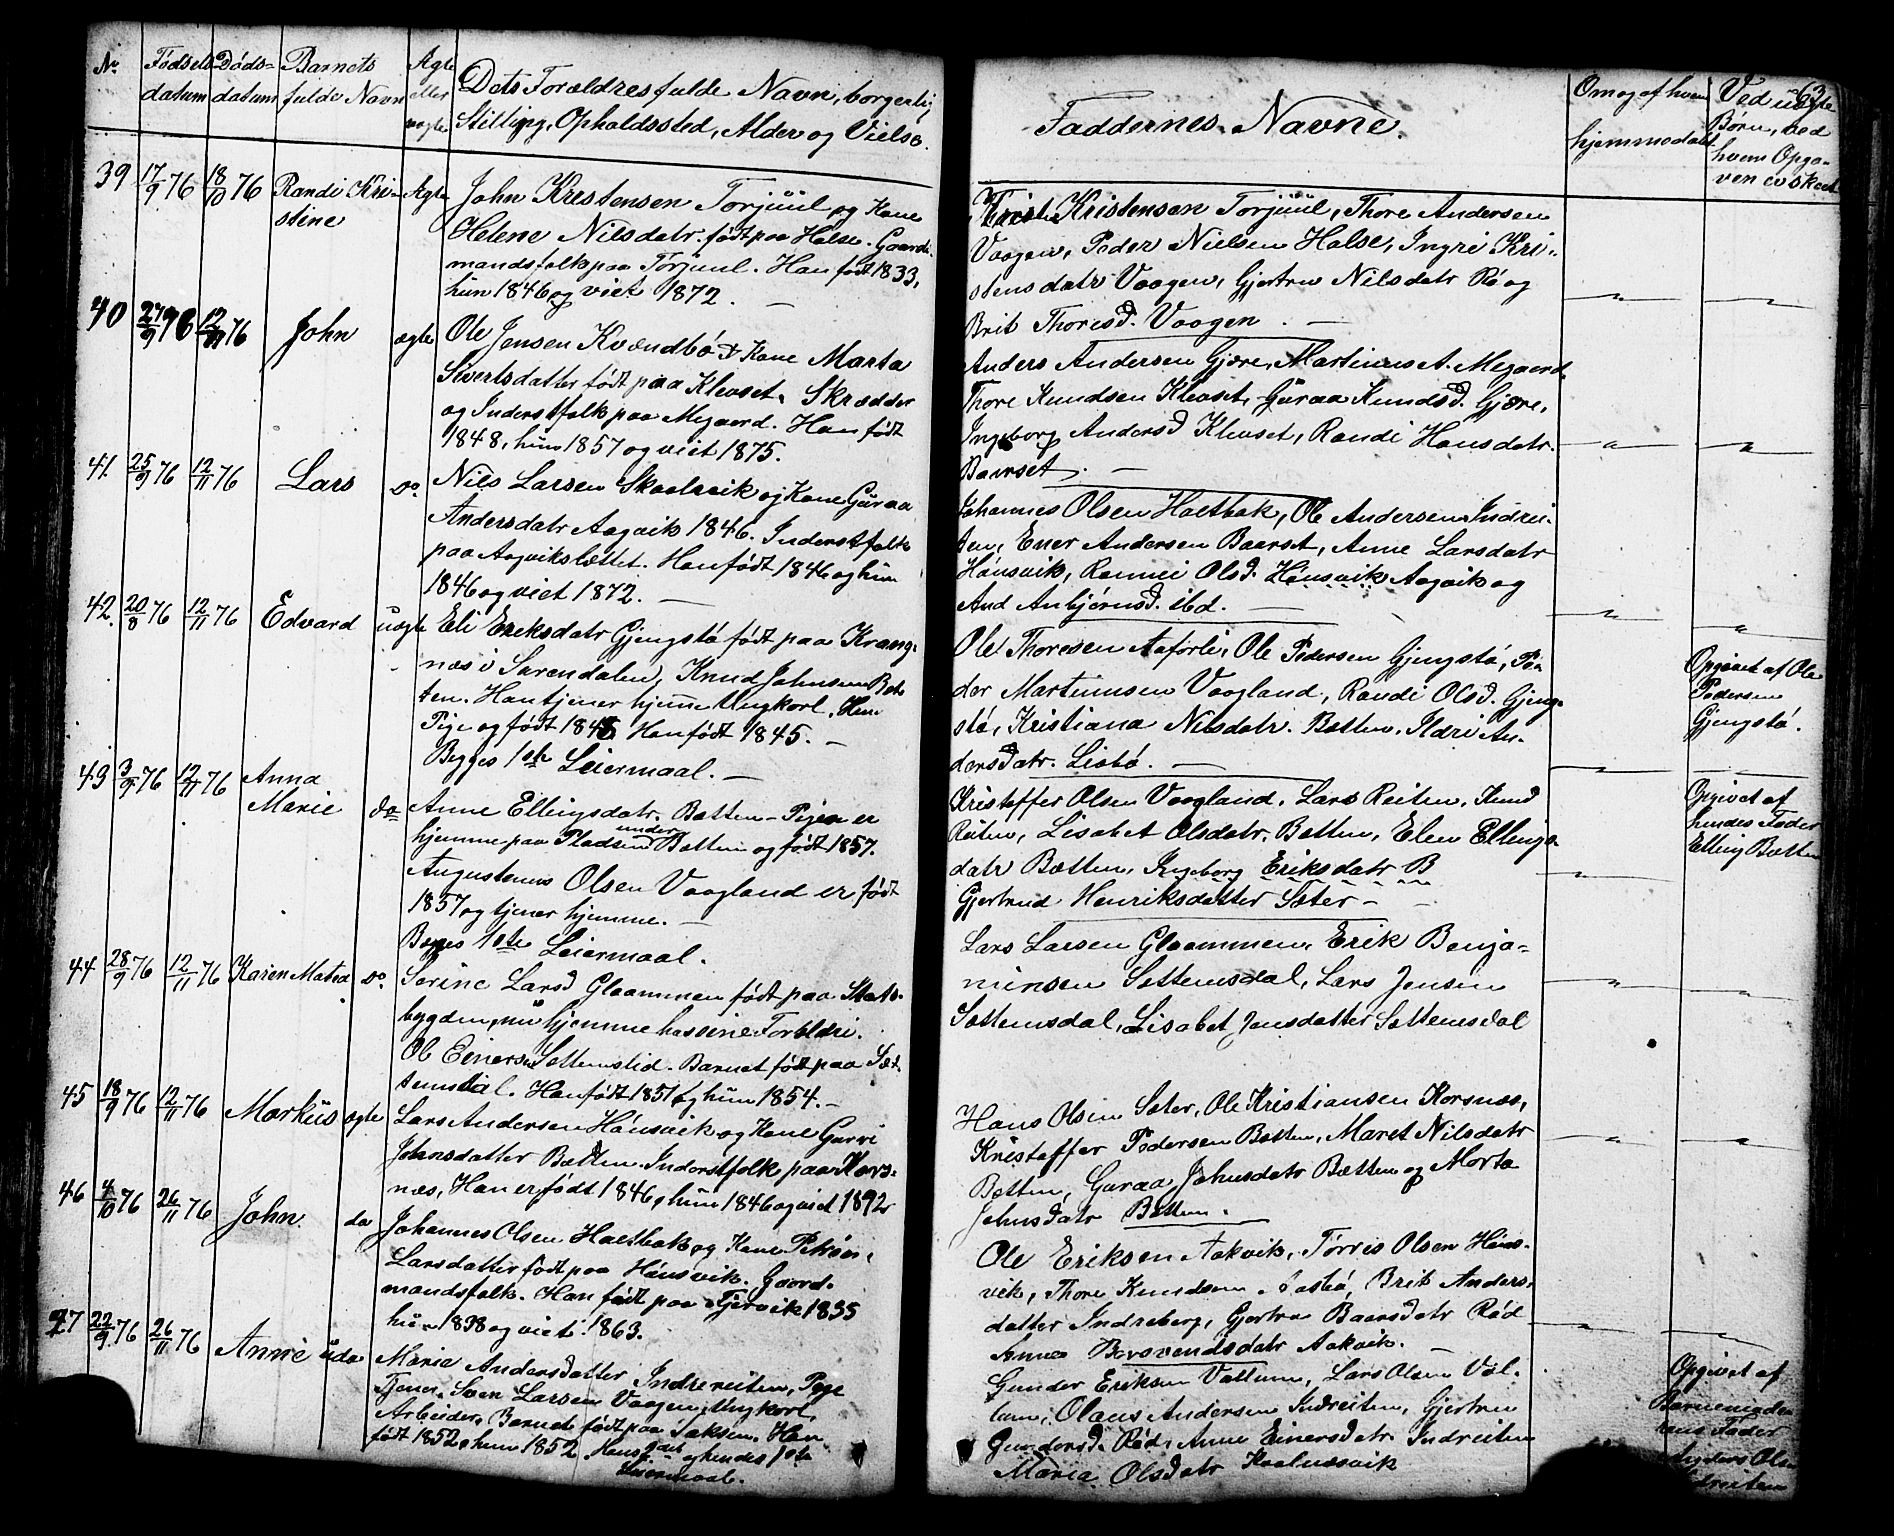 No Fødsels Døds- Barnets Ægte
datum datum fulde Navn eller
uægte
Dets Forældres fulde Navn, borgerlig
Stilling, Opholdssted, Alder og Vielse.
39 17/9 76 18/10 76 Randi Kri- Ægte John Kristensen Torjuul og Kone
stine Helene Nilsdatr. født paa Halse. Gaard-
mandsfolk paa Torjuul. Han født 1833,
hun 1846 og viet 1872. —
40 27/9 76 12/11 76 John ægte Ole Jensen Kvændbø & Kone Marta
Sivertsdatter født paa Klevset. Skrædder
og Inderstfolk paa Megaard. Han født
1848, hun 1857 og viet 1875.
41. 25/9 76 12/11 76 Lars do. Nils Larsen Skaalvik og Kone Guraa
Andersdatr Aagvik 1846. Inderstfolk
paa Aagvikslættet. Han født 1846 og hun
1846 og viet 1872. —
42. 20/8 76 12/11 76 Edvard uægte Eli Eriksdatr Gjengstø født paa Krang-
næs i Surendalen, Knud Johnsen Bøt-
ten. Han tjener hjeme Ungkarl. Hun
Pige og født 1848 Han født 1845. —
Begges 1ste Leiermaal. —
43 3/9 76 12/11 76 Anna
Marie do Anne Ellingsdatr. Bøtten - Pigen er
hjemme paa Pladsen under Bøtten og født 1857.
Augustinus Olsen Vaagland er født
1857 og tjener hjemme. —
Begges 1ste Leiermaal.
44 28/9 76 12/11 76 Karen Matea do. Serine Larsd Glaammen født paa Stads-
bygden, nu hjemme hos sine Forældre.
Ole Einersen Sættemslid. Barnet født paa Sæt-
temsdal. Han født 1851 og hun 1854. —
45 18/9 76 12/11 76 Markus ægte Lars Andersen Hønsvik og Kone Gurri
Johnsdatter Bøtten. Inderstfolk paa Kors-
næs, Han er født 1846, hun 1846 og viet 1872
46 4/10 76 26/11 76 John do Johannes Olsen Holtbak og Kone Peternn.
Larsdatter født paa Hønsvik. Gaard-
mandsfolk. Han født paa Fjervik 1835
hun 1838 og viet 1863.
47 22/9 76 26/11 76 Anne udo Marie Andersdatter Indrereiten, Pige
Tjener. Sven Larsen Vaagen Ungkarl,
Arbeider. Barnet født paa Saksen. Han
født 1852, hun 1852. Hans 2det og hendes 1ste
Leiermaal.
Faddernes Navne.
Om og af hvem
hjemmedøbt
63
Ved uægte
Børn, ved
hvem Opga-
ven er skeet
Krist. Kristensen Torjuul, Thore Andersen
Vaagen, Peder Nielsen Halse, Ingri Kri-
stensdatr Vaagen, Gjertru Nilsdatr Rø og
Brit Thoresd. Vaagen. —
Anders Andersen Gjøre, Martinus A. Megaard
Thore Knudsen Klevset, Guraa Knudsd. Gjøre,
Ingeborg Andersd Klevset, Randi Hansdatr.
Baarset. —
Johannes Olsen Holtbak, Ole Andersen Indrei-
ten, Ener Andersen Baarset, Anne Larsdatr
Hønsvik, Rannei Olsd. Hønsvik Aagvik og
And Anbjørnsd. ibd. —
Ole Thoresen Aaforli, Ole Pedersen Gjengstø, Pe-
der Martinusen Vaagland, Randi Olsd. Gjeng-
stø, Kristiana Nilsdatr. Bøtten, Ildri An-
dersdatr. Lisbø. —
Opgivet af Ole
Pedersen
Gjengstø.
Kristoffer Olsen Vaagland, Lars Reiten, Knud
Reiten, Lisabet Olsdatr. Bøtten, Elen Ellings-
datr Bøtten, Ingeborg Eriksdatr B
Gjertrud Henriksdatter Sæter -
Opgivet af
hendes Fader
Elling Bøtten
Lars Larsen Glaammen, Erik Benja-
minsen Sættemsdal, Lars Jensen
Sættemsdal, Lisabet Jensdatter Sættemsdal
Hans Olsen Sæter, Ole Kristiansen Korsnæs,
Kristoffer Pedersen Bøtten, Maret Nilsdatr
Bøtten, Guraa Johnsdatr Bøtten og Marta
Johnsdatr Bøtten.
Ole Eriksen Aakvik, Tørris Olsen Høns-
vik, Thore Knudsen Aasbø, Brit Anders-
datter Indreberg, Gjertru Baarsdatr Rød
Anne Aakvik.
Gunder Eriksen Vattum, Lars Olsen Val-
lum, Olaus Andersen Indreiten, Gjertru
Gundersd. Rød, Anne Einersdatr Indreiten
Maria Olsdatr Kaalnæsvik
Opgivet af
Barnemoder
ens Fader
Anders Olsen
Indreiten